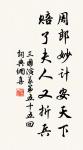 周郎妙计安天下
赔了夫人又折兵
三国演义第五十五回
词典网喜